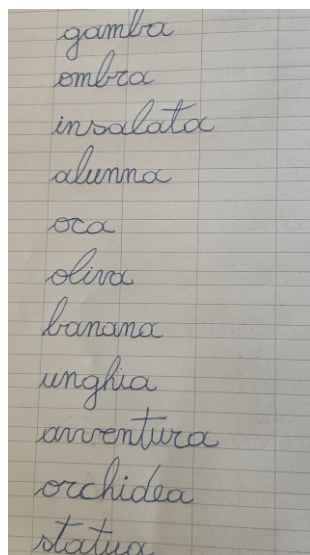 gamba
ombra
insalata
alunna
oca
oliva
banana
unghia
avventura
orchidea
statua